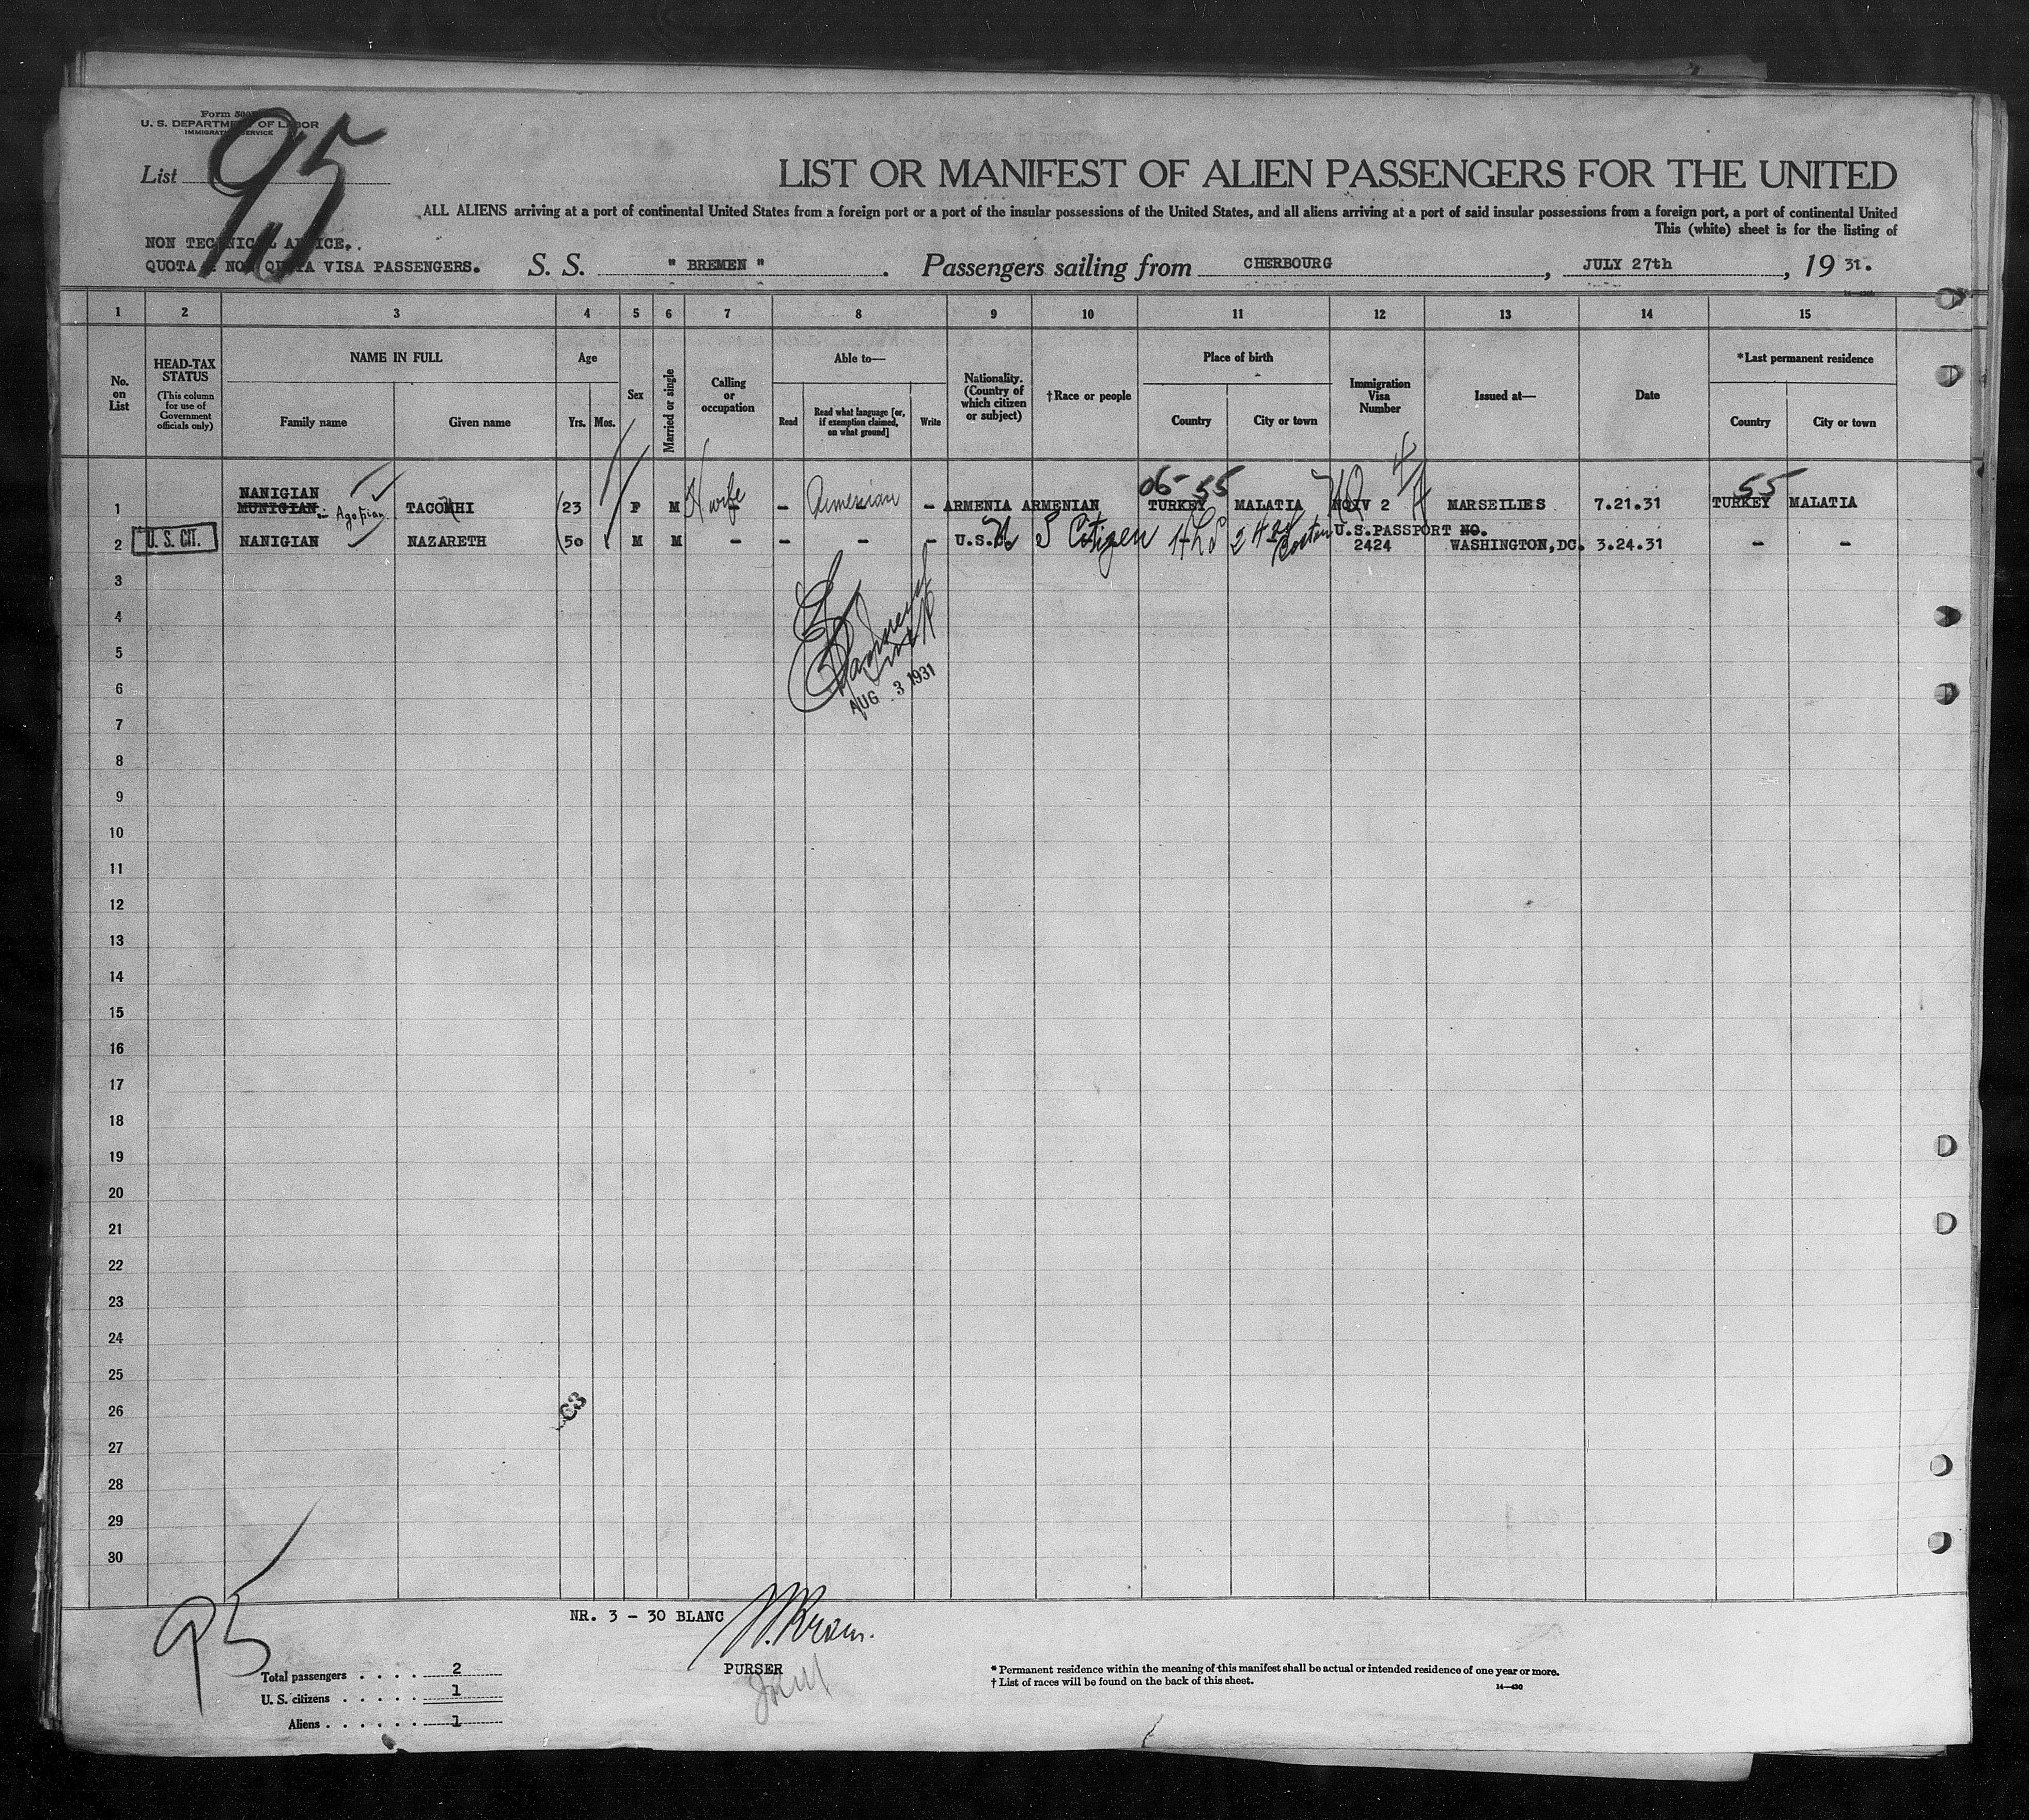 Form 500
U. S. DEPARTMENT OF LABOR
IMMIGRATION SERVICE
List 95
LIST OR MANIFEST OF ALIEN PASSENGERS FOR THE UNITED
ALL ALIENS arriving at a port of continental United States from a foreign port or a port of the insular possessions of the United States, and all aliens arriving at a port of said insular possessions from a foreign port, a port of continental United
This (white) sheet is for the listing of
NON TECNICAL ADVICE.
QUOTA & NON QUOTA VISA PASSENGERS. S. S. " BREMEN ". Passengers sailing from CHERBOURG, JULY 27th, 19 31.
1 2 3 4 5 6 7 8 9 10 11 12 13 14 15
No. on List
HEAD-TAX STATUS
(This column for use of Government officials only)
NAME IN FULL
Family name Given name
Age
Yrs. Mos.
Sex
Married or single
Calling or occupation
Able to—
Read
Read what language [or, if exemption claimed, on what ground]
Write
Nationality. (Country of which citizen or subject)
†Race or people
Place of birth
Country City or town
Immigration Visa Number
Issued at—
Date
*Last permanent residence
Country City or town
06- 55 55
NANIGIAN
1 MUNIGIAN Agopian TACOUHI 23 F M H wife - Armenian - ARMENIA ARMENIAN TURKEY MALATIA NQIV 2 MARSEILIES 7.21.31 TURKEY MALATIA
U.S.PASSPORT NO.
2 U. S. CIT. NANIGIAN NAZARETH 50 M M - - - - U.S. U S Citizen 2424 2424 WASHINGTON,DC. 3.24.31 - -
3
4
5
6
AUG 3 1931
7
8
9
10
11
12
13
14
15
16
17
18
19
20
21
22
23
24
25
26
27
28
29
30
NR. 3 - 30 BLANC
95
PURSER
Total passengers 2
U. S. citizens 1
Aliens 1
* Permanent residence within the meaning of this manifest shall be actual or intended residence of one year or more.
† List of races will be found on the back of this sheet.
14—430